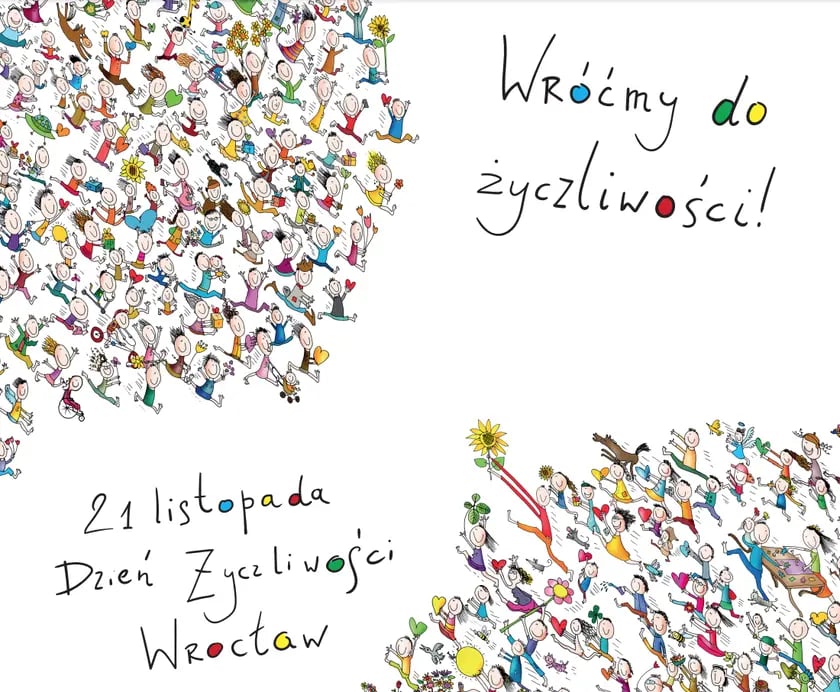 Wróćmy do
życzliwości!
21 listopada
Dzień Życzliwości
Wrocław